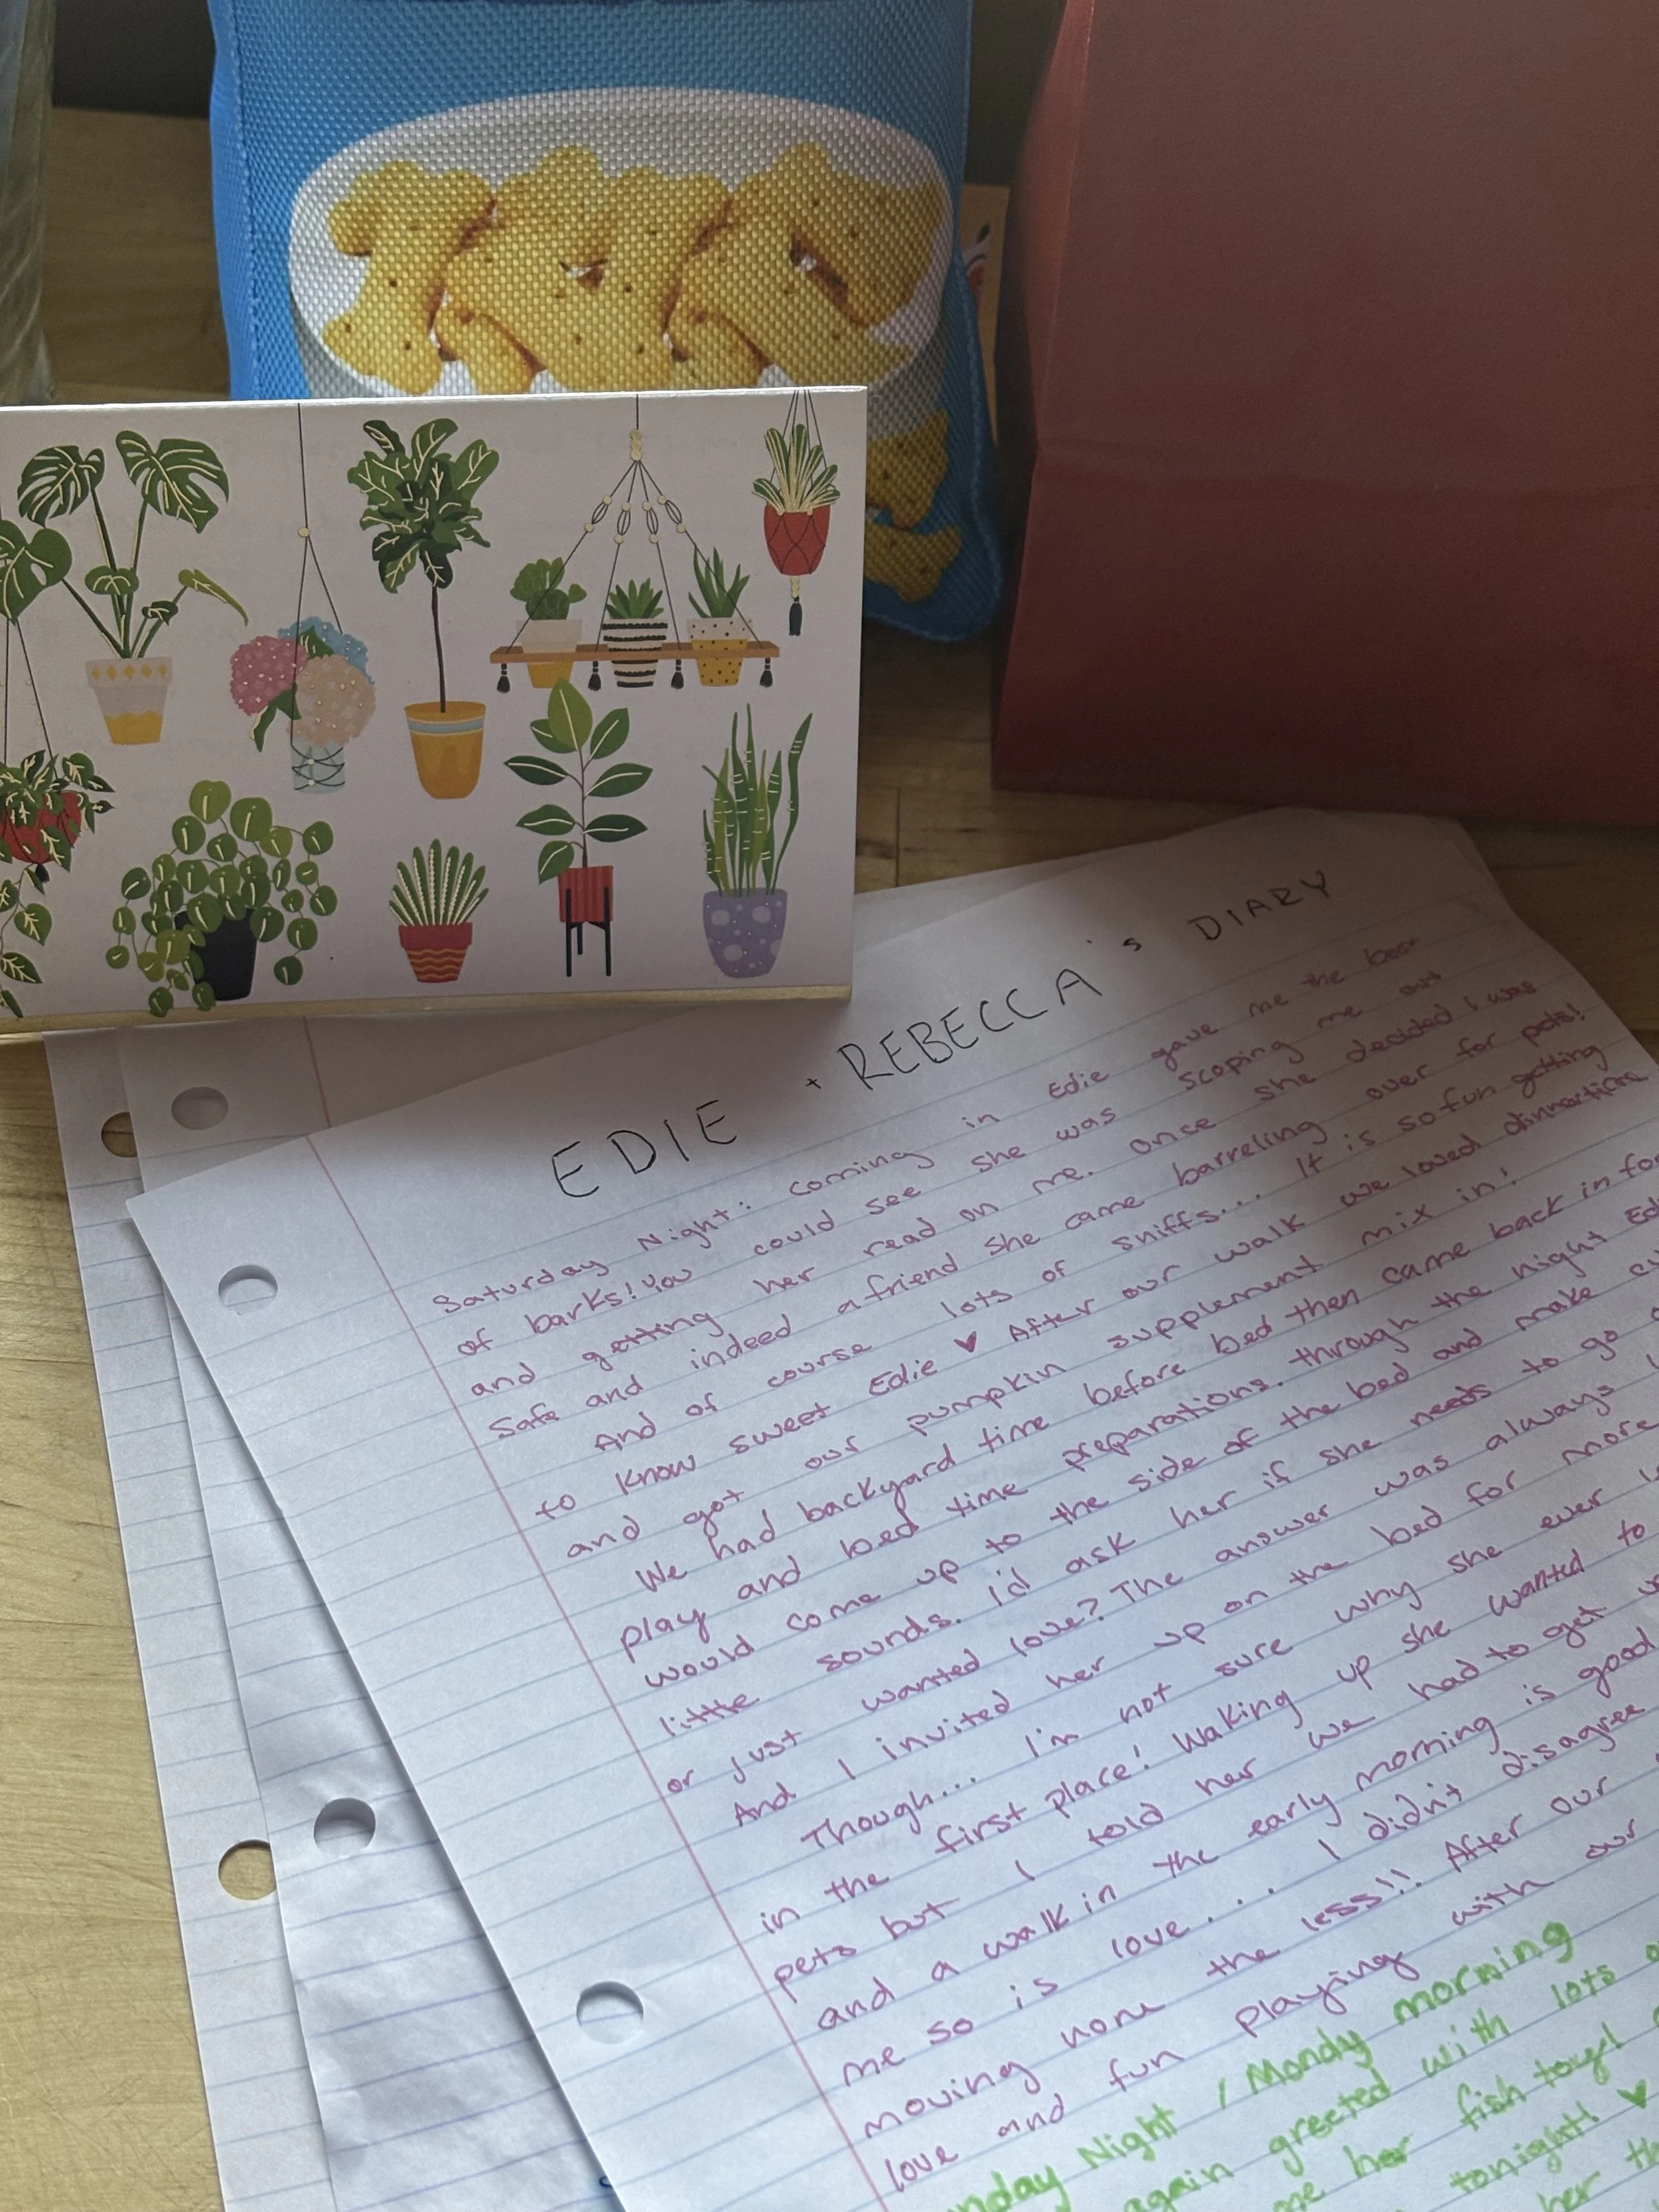 EDIE + REBECCA's DIARY
Saturday Night: Coming in Edie gave me the best
of barks! You could see she was scoping me out
and getting her read on me. Once she decided I was
safe and indeed a friend she came barreling over for pets!
And of course lots of sniffs... It is so fun getting
to know sweet Edie ♥ After our walk we loved dinnertime
and got our pumpkin supplement mix in!
We had backyard time before bed then came back in for
play and bed time preparations. Through the night Edie
would come up to the side of the bed and make
little sounds. I'd ask her if she needs to go
or just wanted love? The answer was always
And I invited her up on the bed for more
Though... I'm not sure why she ever
in the first place! Waking up she wanted to
pets but I told her we had to get
and a walk in the early morning is good
me so is love... I didn't disagree
moving none the less!! After our
love and fun playing with our
Night / Mondy morning
again greeted with lots
me her fish toy!
tonight! ♥
her